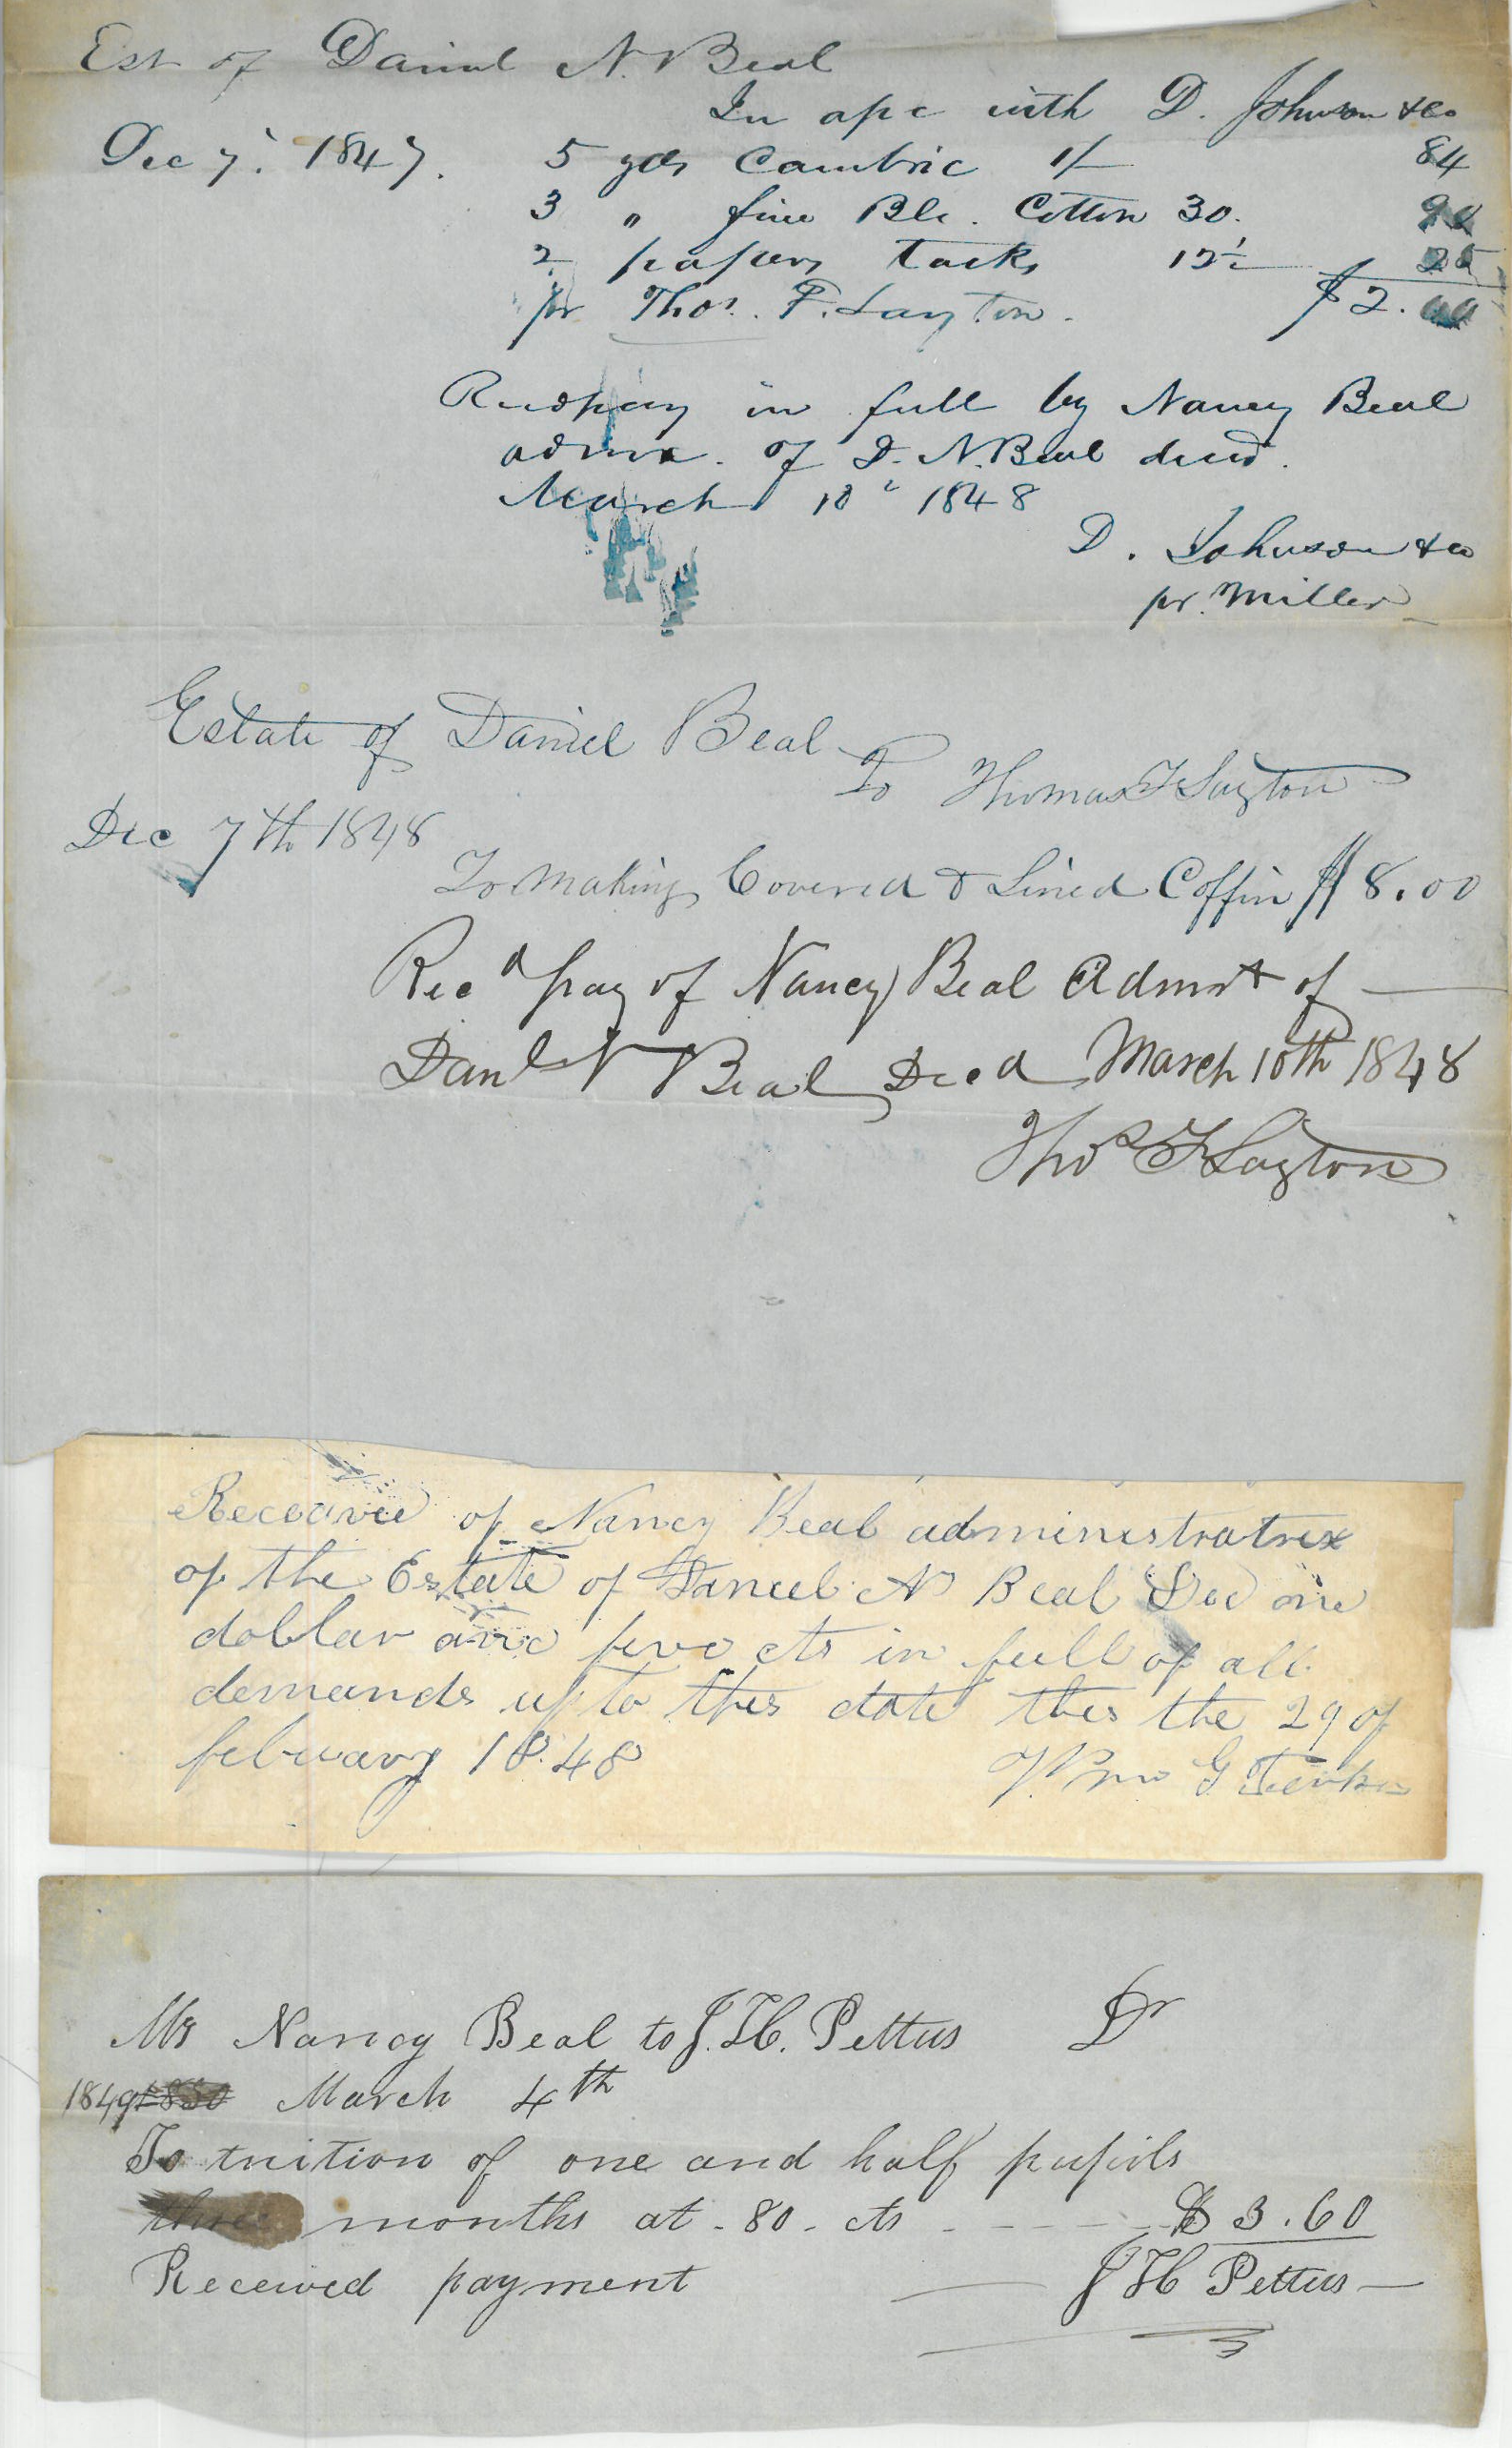 Est of Daniel N. Beal
In a/c with D. Johnson & Co
Dec 7. 1847. 5 yds Cambric 1/- 84
3 " fine Blc. Cotton 30. 90
2 papers tacks 12½ 25
pr Thos. F. Layton. $2.00
Recd pay in full by Nancy Beal
admx. of D. N. Beal decd.
March 10 1848
D. Johnson & Co
pr. Miller
Estate of Daniel Beal
To Thomas F Layton
Dec 7th 1848
To Making Covered & Lined Coffin $8.00
Recd pay of Nancy Beal Admrx of
Danl N Beal Decd March 10th 1848
Thos F Layton
Receavie of Nancy Beal administratrix
of the Estate of Daniel N Beal Dec one
dollar and five cts in full of all
demands up to this date this the 29 of
february 1848
Wm G
Mrs Nancy Beal to J. H. Pettus Dr
1849 1850 March 4th
To tuition of one and half pupils
three months at - 80 - cts - - - - $ 3.60
Received payment — J H Pettus —